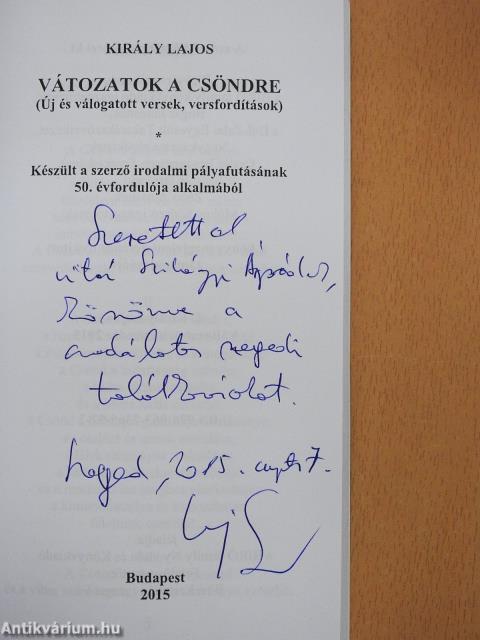 KIRÁLY LAJOS
VÁTOZATOK A CSÖNDRE
(Új és válogatott versek, versfordítások)
*
Készült a szerző irodalmi pályafutásának
50. évfordulója alkalmából
Szeretettel
Szilágyi
a
csodálatos szegedi
találkozásokat.
Szeged, 2015. 7.
Budapest
2015
Antikvárium.hu